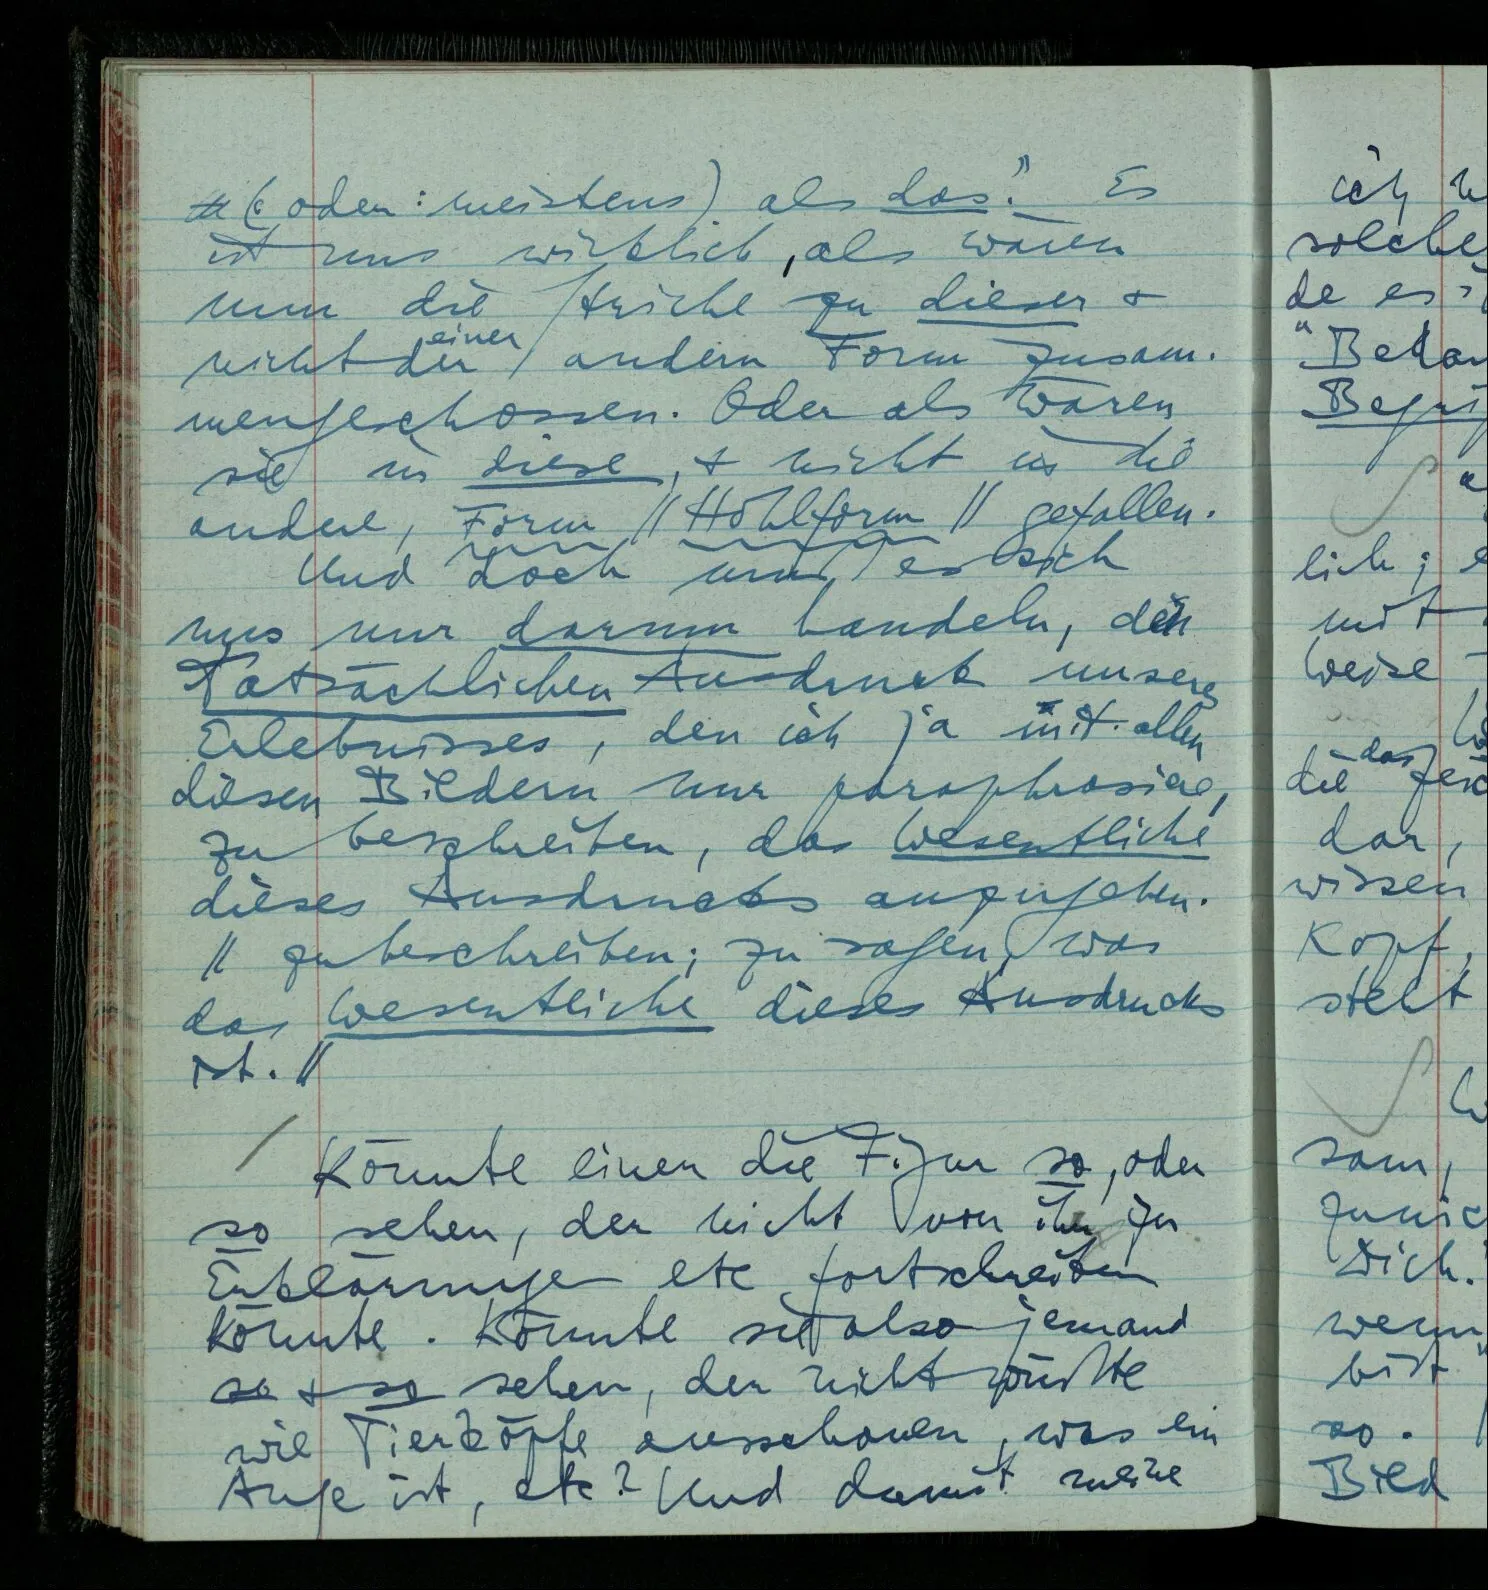 (oder: meistens) als das." Es
ist uns wirklich, als wären
nun die Striche zu dieser &
nicht der einer andern Form zusam-
mengeschossen. Oder als wären
sie in diese, & nicht in die
andere, Form // Hohlform // gefallen.
Und doch muß es sich
uns nur darum handeln, den
tatsächlichen Ausdruck unseres
Erlebnisses, den ich ja mit allen
diesen Bildern nur paraphrasiere,
zu beschreiben, das Wesentliche
dieses Ausdrucks anzugeben.
// zu beschreiben; zu sagen, was
das Wesentliche dieses Ausdrucks
ist. //
Könnte einer die Figur so, oder
so sehen, der nicht von ihr zu
Erklärungen etc fortschreiten
könnte. Könnte sie also jemand
so & so sehen, der nicht wüßte
wie Tierköpfe ausschauen, was ein
Auge ist, etc? Und damit meine
ich
solche
de es
"
lich;
mit
Weise
die das
dar,
wissen
Kopf,
stellt
sam,
Dich.
wenn
bist
so.
Bild